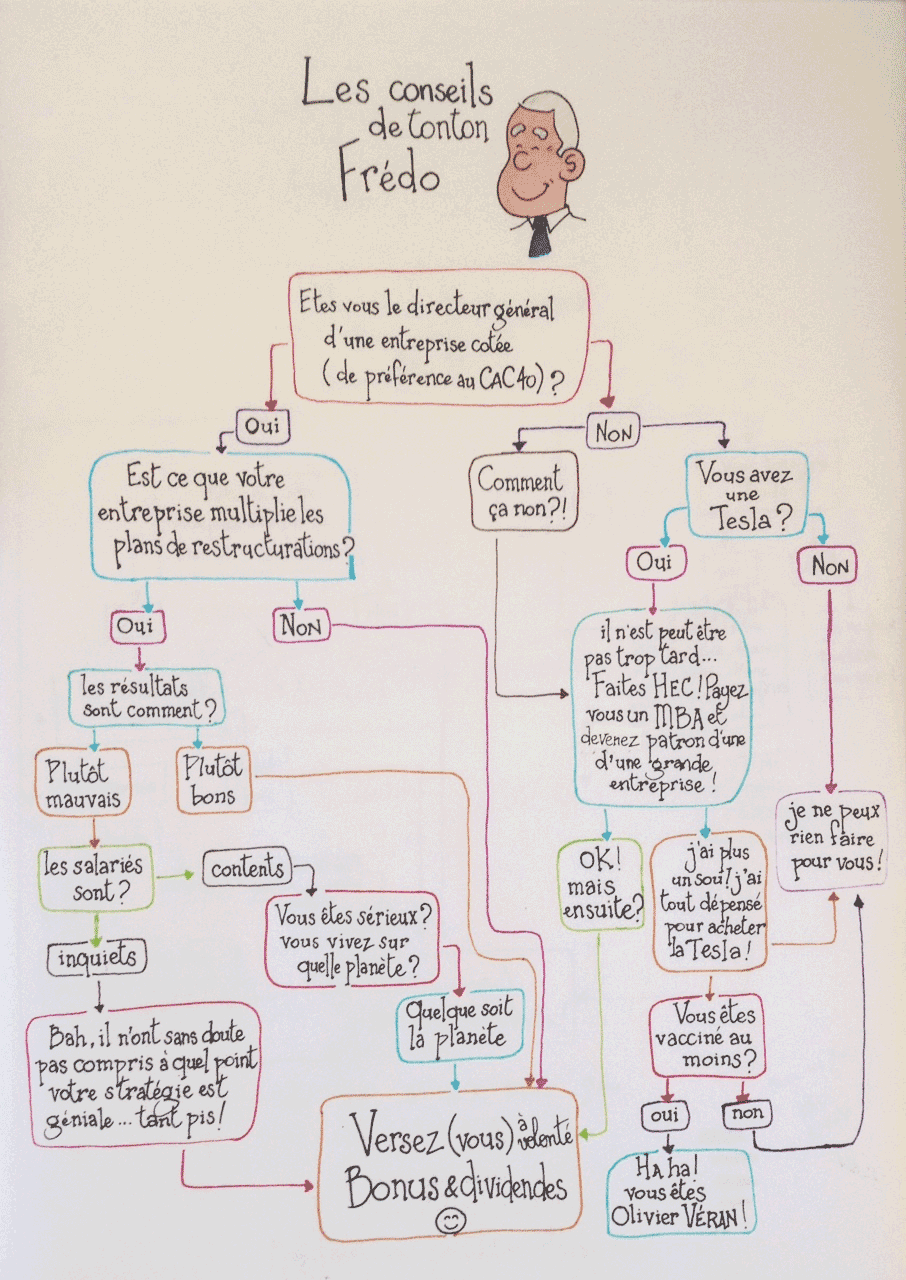 Les conseils
de tonton
Frédo
Etes vous le directeur général
d'une entreprise cotée
(de préférence au CAC40) ?
Oui
Non
Est ce que votre
entreprise multiplie les
plans de restructurations?
Comment
ça non?!
Vous avez
une
Tesla?
Oui
Non
Oui
Non
il n'est peut être
pas trop tard...
Faites HEC! Payez
vous un MBA et
devenez patron d'une
d'une grande
entreprise!
les résultats
sont comment?
Plutôt
mauvais
Plutôt
bons
je ne peux
rien faire
pour vous!
les salariés
sont?
contents
OK!
mais
ensuite?
j'ai plus
un sou! j'ai
tout dépensé
pour acheter
la Tesla!
inquiets
Vous êtes sérieux?
vous vivez sur
quelle planète?
Quelque soit
la planète
Vous êtes
vacciné au
moins?
Bah, il n'ont sans doute
pas compris à quel point
votre stratégie est
géniale... tant pis!
oui
non
Versez (vous) à volonté
Bonus & dividendes
Ha ha!
vous êtes
Olivier VÉRAN!